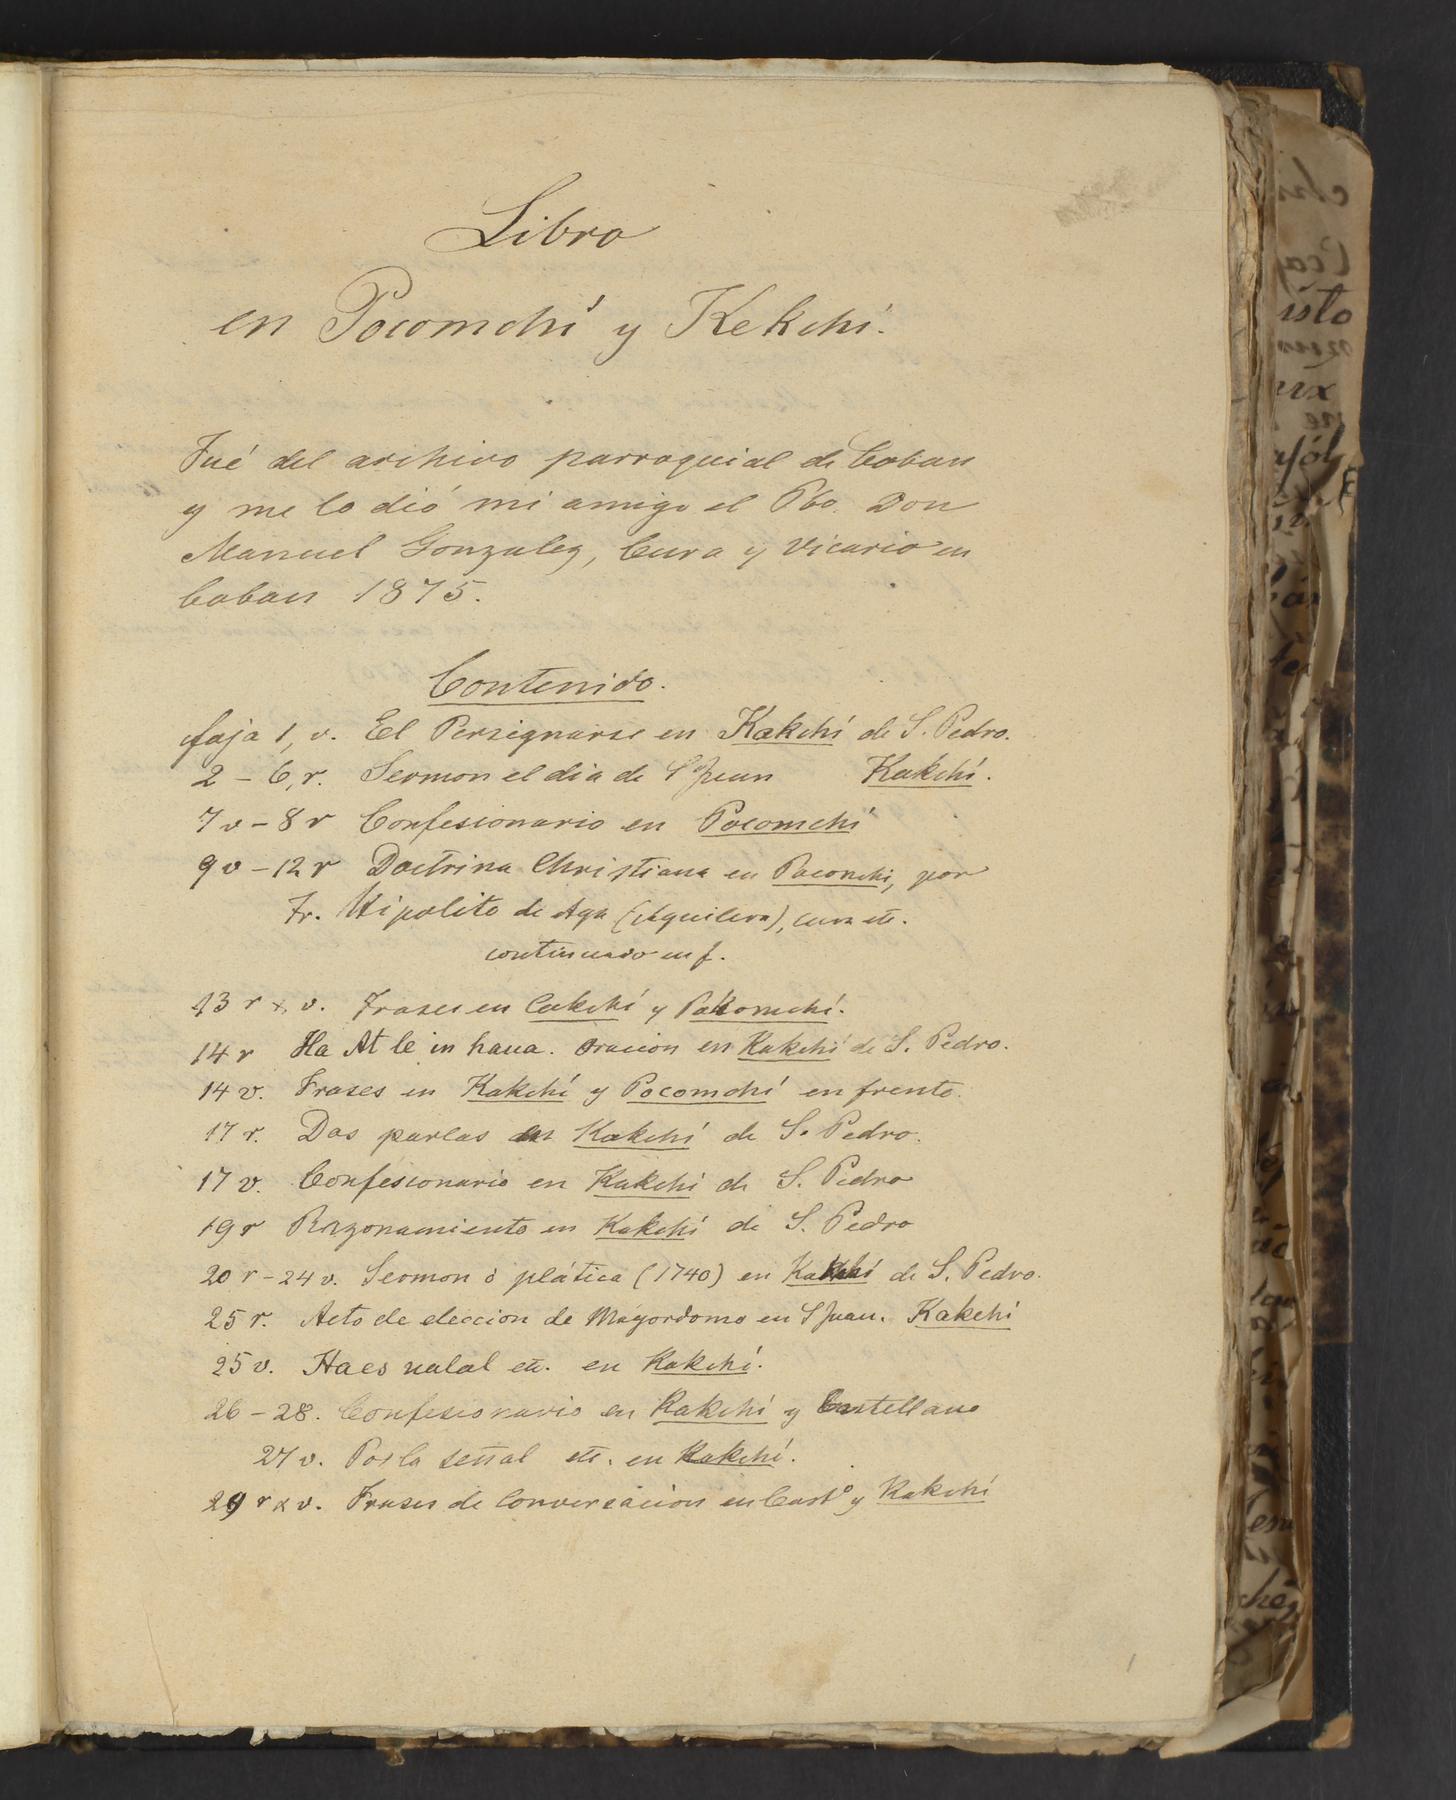 Libro
en Pocomchí y Kekchí.
Fué del archivo parroquial de Coban
y me lo dió mi amigo el Pbo. Don
Manuel Gonzalez, Cura y Vicario en
Coban 1875.
Contenido.
foja 1, v. El Persignarse en Kakchí de S. Pedro.
2 – 6, r. Sermon el dia de S Juan Kakchí.
7 v – 8 r Confesionario en Pocomchí
9 v – 12 r Doctrina Christiana en Poconchi, por
Fr. Hipolito de Aga (Aguilera), cura etc.
continuado en f.
13 r & v. Frases en Cakchí y Pokomchí.
14 r Ha At le in haua. oracion en Kakchí de S. Pedro.
14 v. Frases en Kakchí y Pocomchí en frente.
17 r. Dos parlas en Kakchí de S. Pedro.
17 v. Confesionario en Kakchi de S. Pedro
19 r Razonamiento en Kakchí de S. Pedro
20 r – 24 v. Sermon ò plática (1740) en Kakchí de S. Pedro.
25 r. Acto de eleccion de Mayordomo en S Juan. Kakchí
25 v. Haes nalal etc. en Kakchí.
26 – 28. Confesionario en Kakchí y Castellano
27 v. Por la señal etc. en Kakchí.
29 r & v. Frases de Conversacion en Castº y Kakchí
1